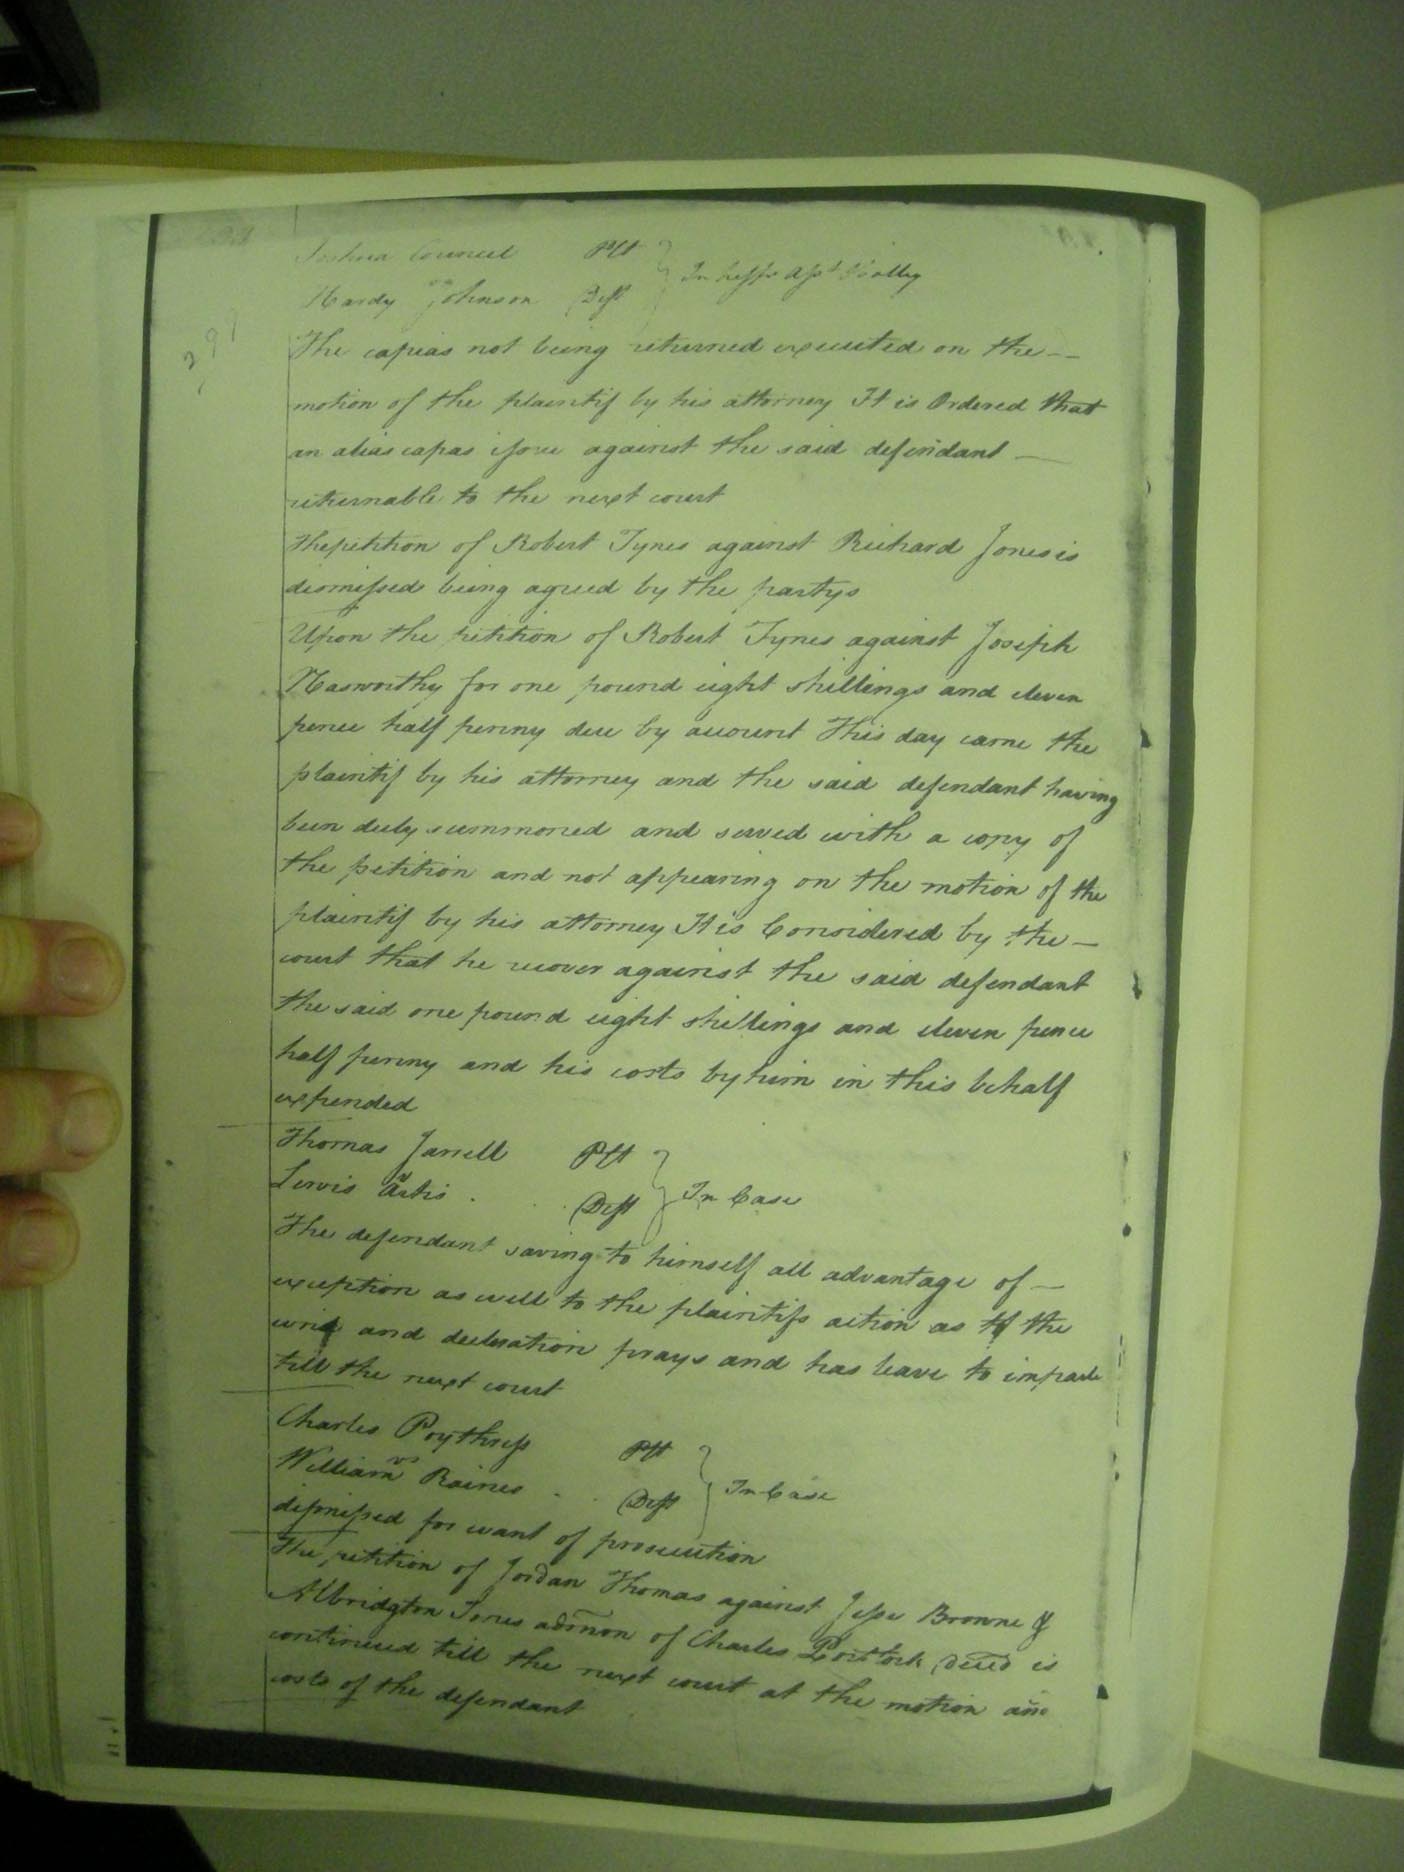 Joshua Council Plt
vs
Hardy Johnson Deft
In Tresps Asst & Battey
297
The capias not being returned executed on the —
motion of the plaintif by his attorney It is Ordered that
an alias capas issue against the said defendant —
returnable to the next court
The petition of Robert Tynes against Richard Jones is
dismissed being agreed by the partys
Upon the petition of Robert Tynes against Joseph
Nasworthy for one pound eight shillings and eleven
pence half penny due by account This day came the
plaintif by his attorney and the said defendant having
been duly summoned and served with a copy of
the petition and not appearing on the motion of the
plaintif by his attorney It is Considered by the —
court that he recover against the said defendant
the said one pound eight shillings and eleven pence
half penny and his costs by him in this behalf
expended
Thomas Jarrell Plt
vs
Lewis Artis Deft
In Case
The defendant saving to himself all advantage of —
exception as well to the plaintifs action as to the
writ and declaration prays and has leave to imparle
till the next court
Charles Poythress Plt
vs
William Raines Deft
In Case
dismissed for want of prosecution
The petition of Jordan Thomas against Jesse Browne &
Albridgton Jones admon of Charles Portlock decd is
continued till the next court at the motion and
costs of the defendant